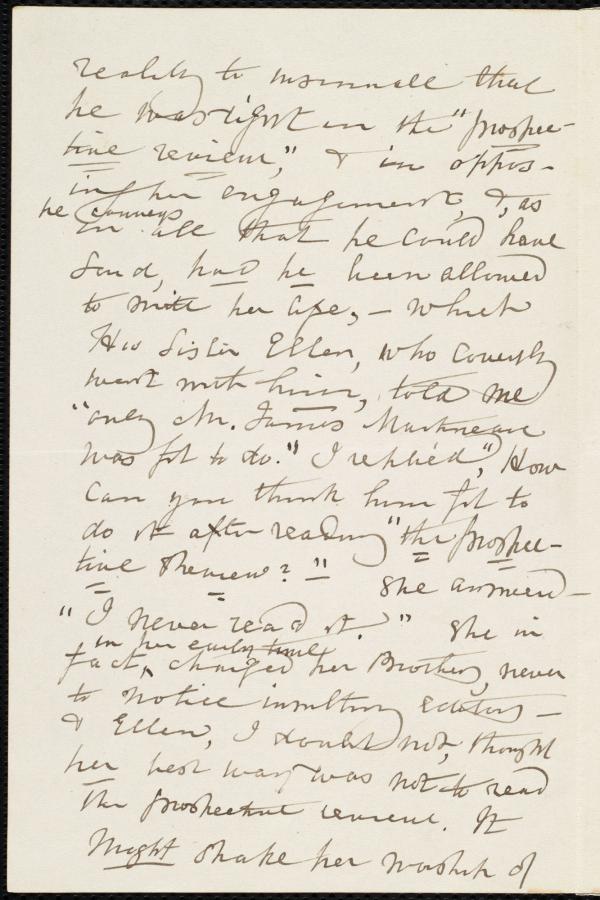 reality to insinuate that
he was right in the "Prospec-
tive review," & in oppos-
ing her engagement, &, as
he conveys
in all that he could have
said, had he been allowed
to write her life, – which
His Sister Ellen, who covertly
went with him, told me
"only Mr. James Martineau
was fit to do." I replied, "How
can you think him fit to
do it after reading "the Prospec-
tive Review?" She answered –
"I never read it." She in
in her early time
fact, charged her Brothers, never
to notice insulting Editors –
& Ellen, I doubt not, thought
her best way was not to read
the Prospective review. It
Might shake her worship of